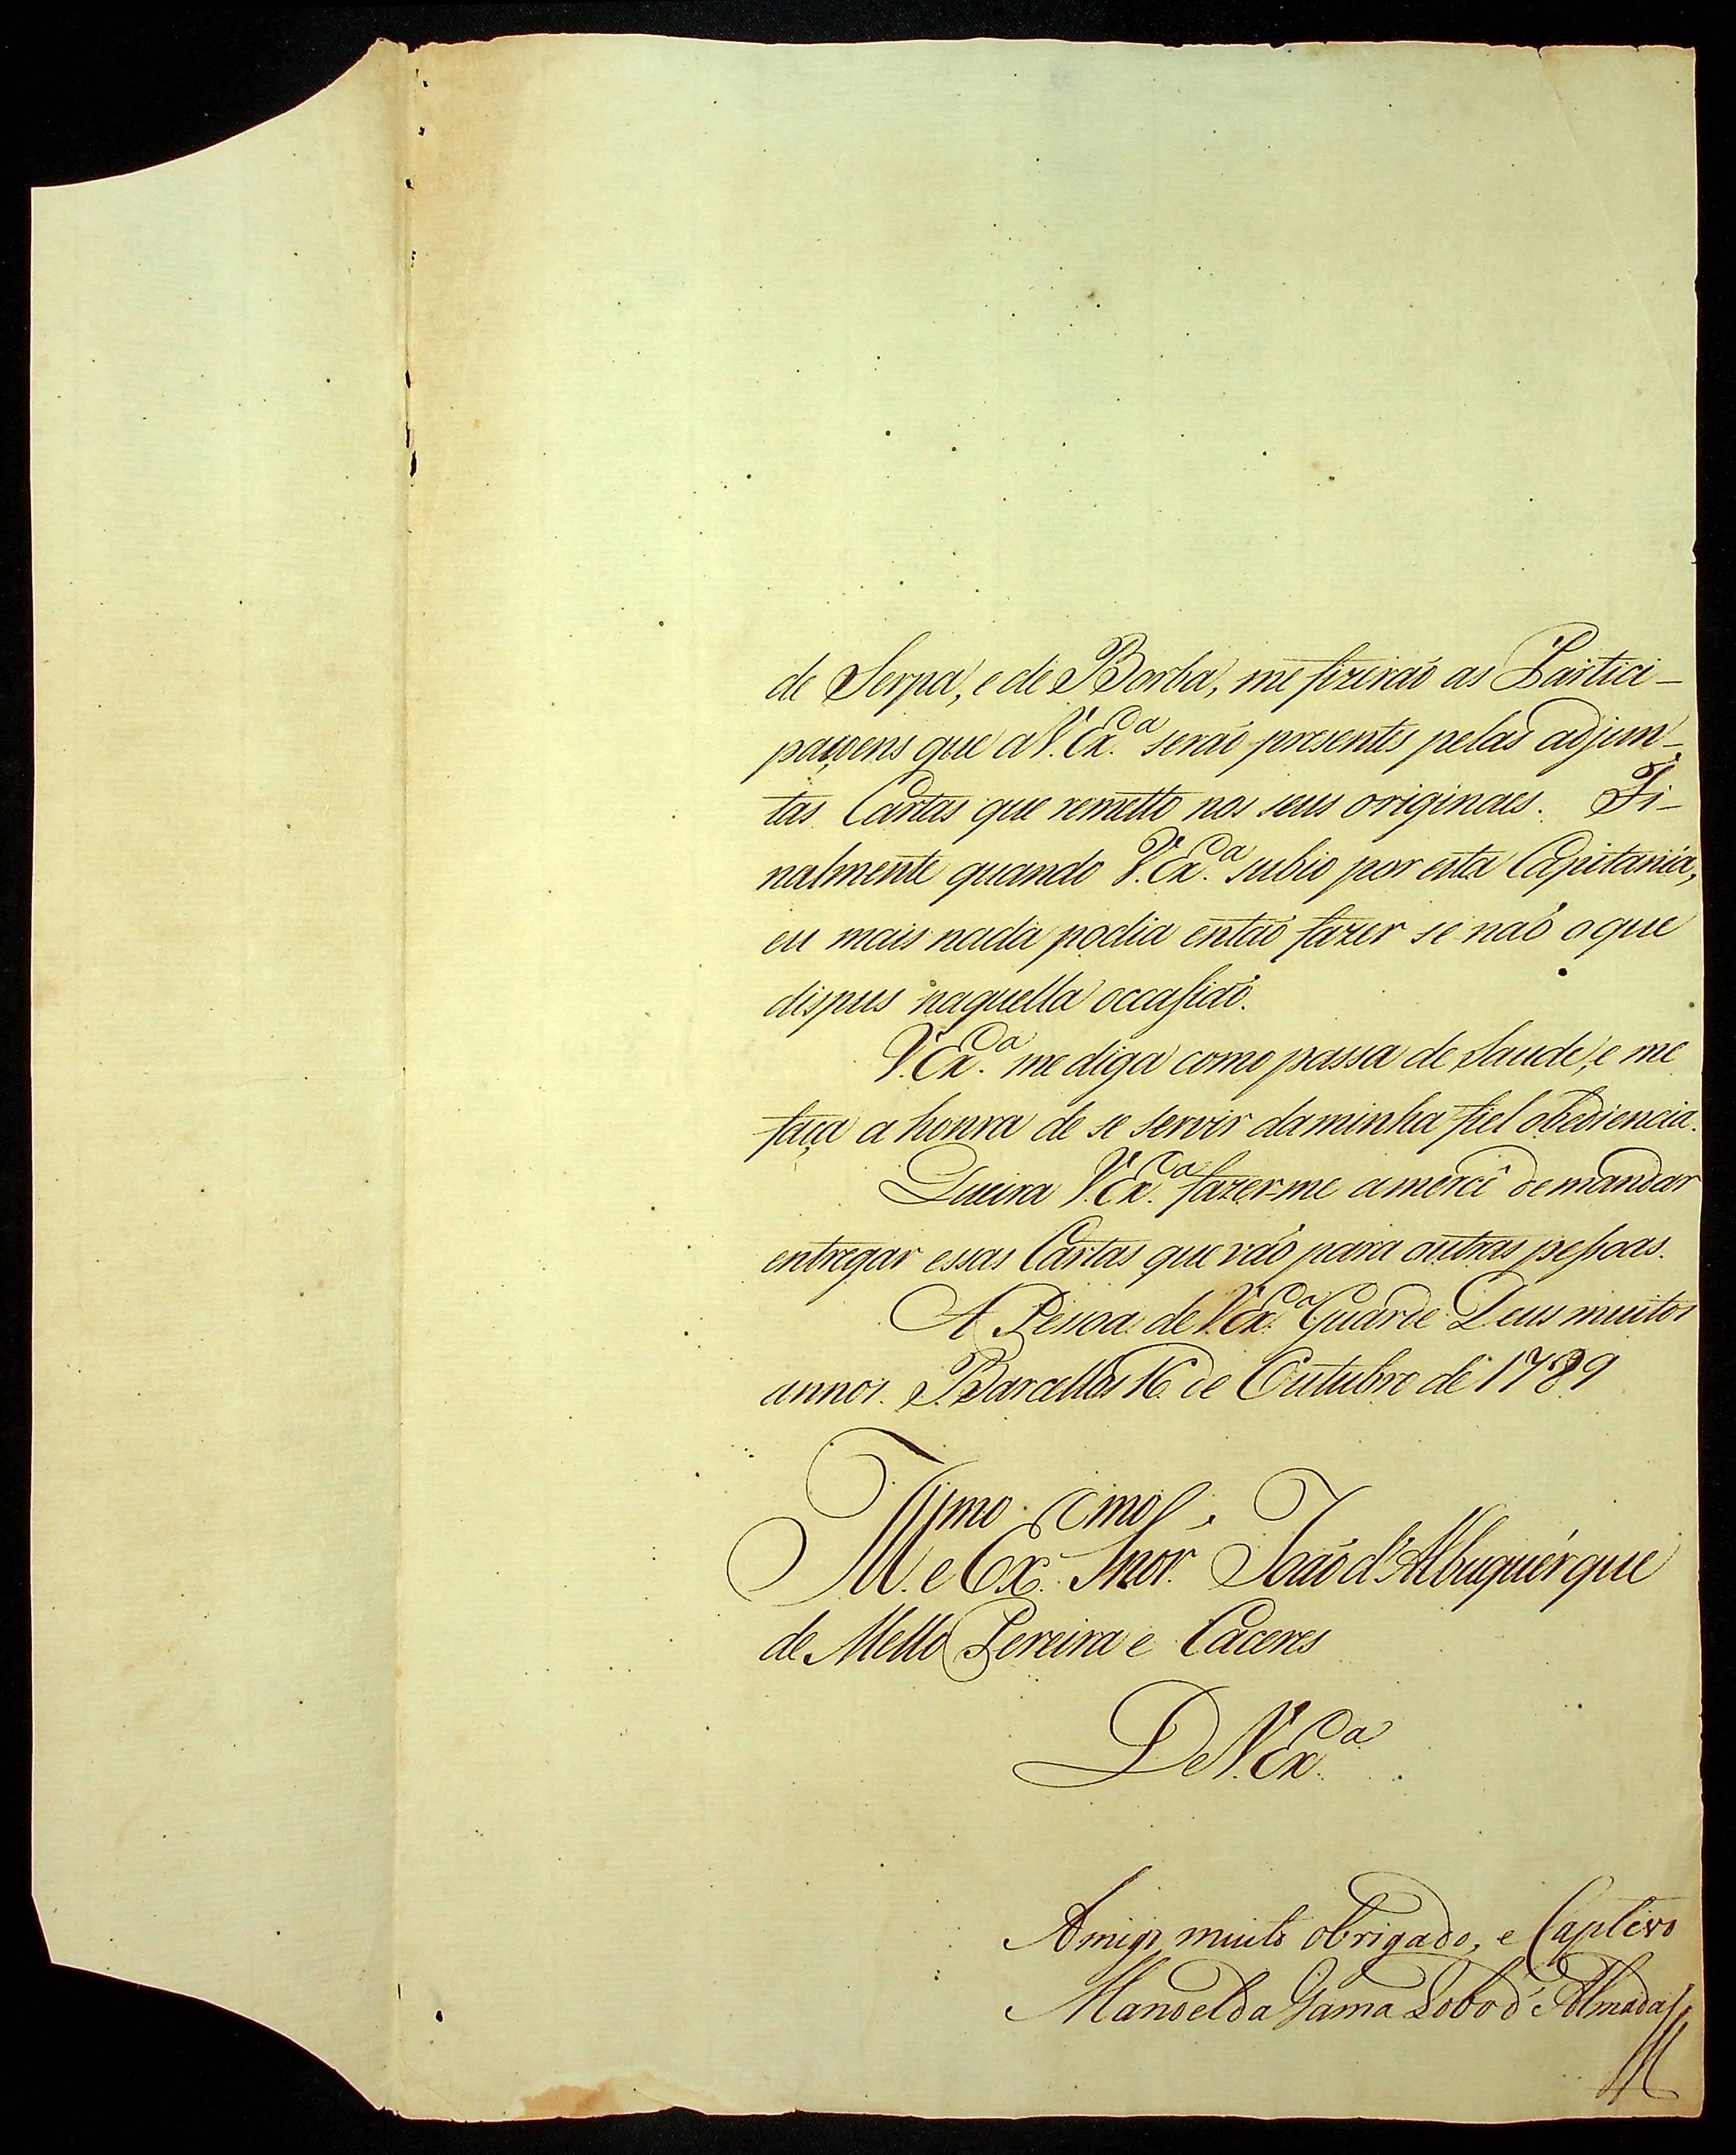 de Serpa, e de Borba, me fizeraõ as Partici-
paçoens que a V. Ex.ª seraõ presentes pelas adjun-
tas Cartas que remetto nos seus originaes. Fi-
nalmente quando V. Ex.ª subio por esta Capitania,
eu mais nada podia entaõ fazer se naõ o que
dispus naquella occasiaõ.
V. Ex.ª me diga como passa de Saude, e me
faça a honra de se servir da minha fiel obediencia.
Queira V. Ex.ª fazer-me a mercê de mandar
entregar essas Cartas que vaõ para outras pessoas.
A Pessoa de V. Ex.ª Guarde Deus muitos
annos. Barcellos 16 de Outubro de 1789
Ill.mo e Ex.mo Snor. Joaõ d'Albuquerque
de Mello Pereira e Caceres
De V. Ex.ª
Amigo muito obrigado, e Captivo
Manoel da Gama Lobo d'Almada